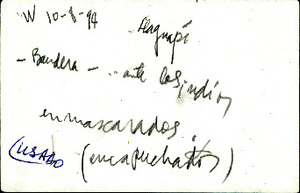 W 10-8-94
- Bandera - .. ante los indios
enmascarados.
(encapuchados)
USADO